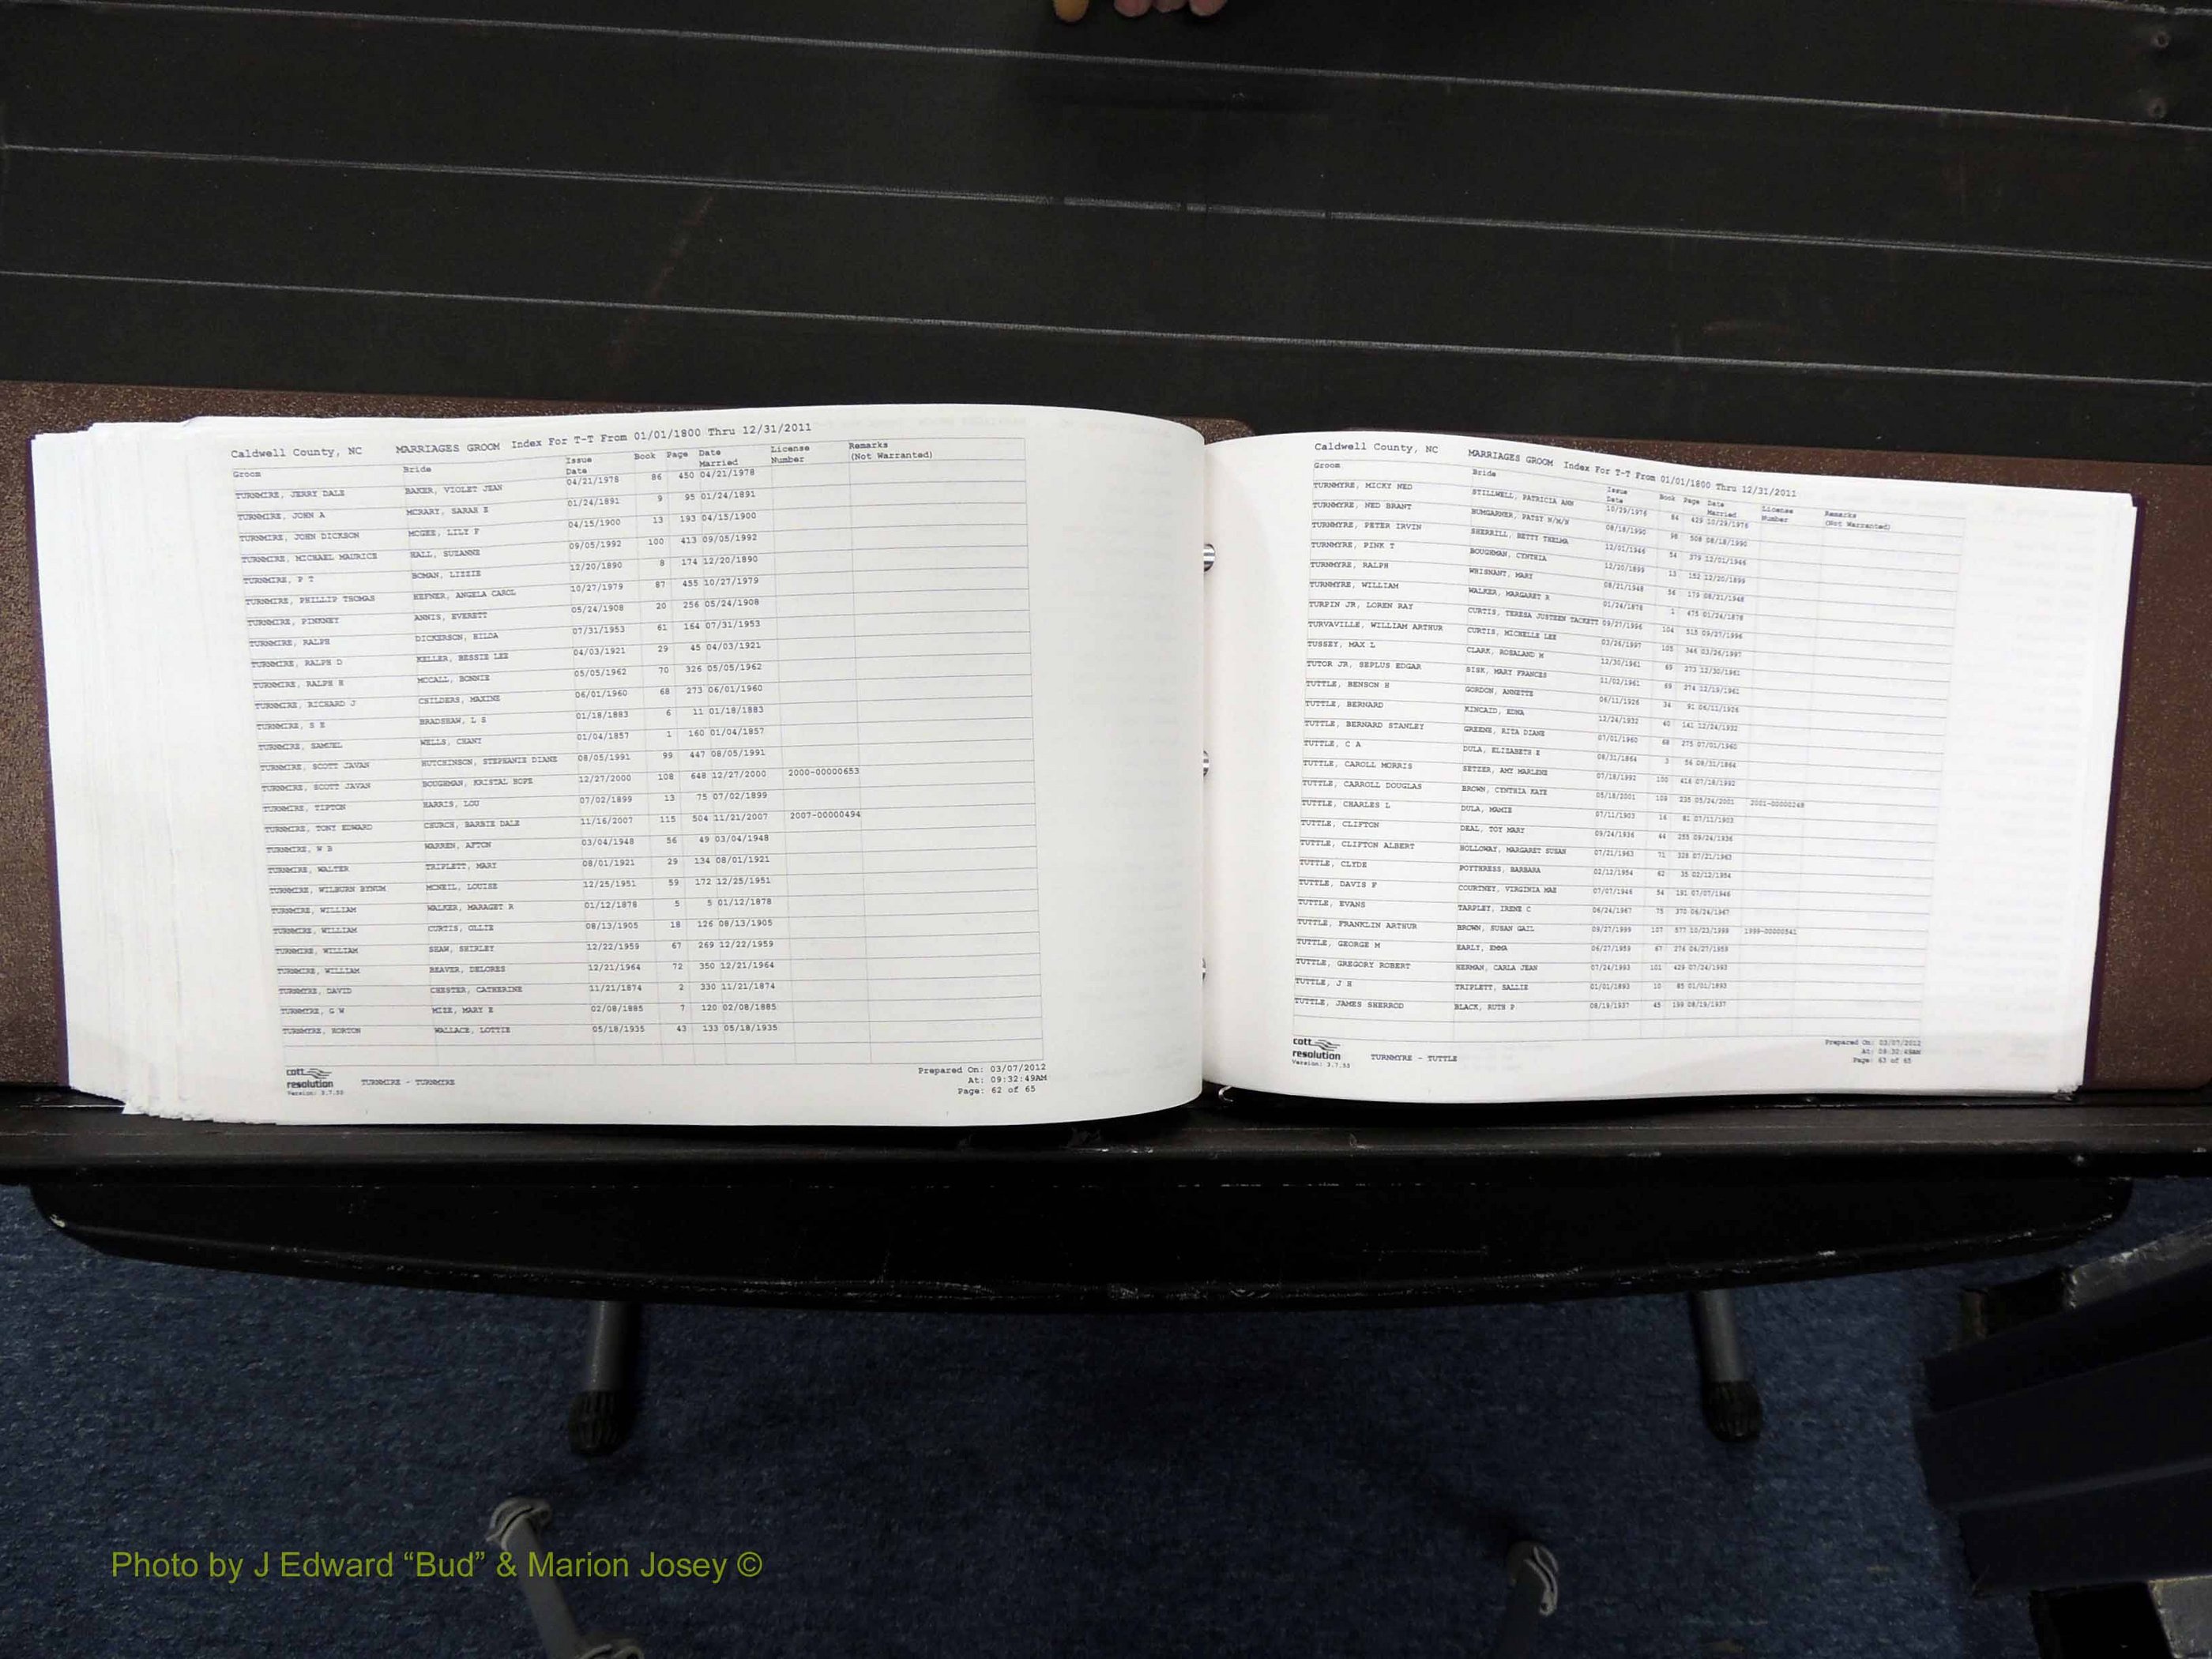 Caldwell County, NC MARRIAGES GROOM Index For T-T From 01/01/1800 Thru 12/31/2011
Groom Bride Issue Date Book Page Date Married License Number Remarks (Not Warranted)
TURNMIRE, JERRY DALE BAKER, VIOLET JEAN 04/21/1978 86 450 04/21/1978
TURNMIRE, JOHN A MCRARY, SARAH E 01/24/1891 9 95 01/24/1891
TURNMIRE, JOHN DICKSON MCGEE, LILY F 04/15/1900 13 193 04/15/1900
TURNMIRE, MICHAEL MAURICE HALL, SUZANNE 09/05/1992 100 413 09/05/1992
TURNMIRE, P T BOMAN, LIZZIE 12/20/1890 8 174 12/20/1890
TURNMIRE, PHILLIP THOMAS HEFNER, ANGELA CAROL 10/27/1979 87 455 10/27/1979
TURNMIRE, PINKNEY ANNIS, EVERETT 05/24/1908 20 256 05/24/1908
TURNMIRE, RALPH DICKERSON, HILDA 07/31/1953 61 164 07/31/1953
TURNMIRE, RALPH D KELLER, BESSIE LEE 04/03/1921 29 45 04/03/1921
TURNMIRE, RALPH H MCCALL, BONNIE 05/05/1962 70 326 05/05/1962
TURNMIRE, RICHARD J CHILDERS, MAXINE 06/01/1960 68 273 06/01/1960
TURNMIRE, S E BRADSHAW, L S 01/18/1883 6 11 01/18/1883
TURNMIRE, SAMUEL WELLS, CHANY 01/04/1857 1 160 01/04/1857
TURNMIRE, SCOTT JAVAN HUTCHINSON, STEPHANIE DIANE 08/05/1991 99 447 08/05/1991
TURNMIRE, SCOTT JAVAN BOUGHMAN, KRISTAL HOPE 12/27/2000 108 648 12/27/2000 2000-00000653
TURNMIRE, TIPTON HARRIS, LOU 07/02/1899 13 75 07/02/1899
TURNMIRE, TONY EDWARD CHURCH, BARBIE DALE 11/16/2007 115 504 11/21/2007 2007-00000494
TURNMIRE, W B WARREN, AFTON 03/04/1948 56 49 03/04/1948
TURNMIRE, WALTER TRIPLETT, MARY 08/01/1921 29 134 08/01/1921
TURNMIRE, WILBURN BYNUM MCNEIL, LOUISE 12/25/1951 59 172 12/25/1951
TURNMIRE, WILLIAM WALKER, MARAGET R 01/12/1878 5 5 01/12/1878
TURNMIRE, WILLIAM CURTIS, OLLIE 08/13/1905 18 126 08/13/1905
TURNMIRE, WILLIAM SHAW, SHIRLEY 12/22/1959 67 269 12/22/1959
TURNMIRE, WILLIAM BEAVER, DELORES 12/21/1964 72 350 12/21/1964
TURNMYRE, DAVID CHESTER, CATHERINE 11/21/1874 2 330 11/21/1874
TURNMYRE, G W MIZE, MARY E 02/08/1885 7 120 02/08/1885
TURNMYRE, HORTON WALLACE, LOTTIE 05/18/1935 43 133 05/18/1935
cott resolution
Version: 3.7.53
TURNMIRE - TURNMYRE
Prepared On: 03/07/2012
At: 09:32:49AM
Page: 62 of 65
Caldwell County, NC MARRIAGES GROOM Index For T-T From 01/01/1800 Thru 12/31/2011
Groom Bride Issue Date Book Page Date Married License Number Remarks (Not Warranted)
TURNMYRE, MICKY NED STILLWELL, PATRICIA ANN 10/29/1976 84 429 10/29/1976
TURNMYRE, NED BRANT BUMGARNER, PATSY N/M/N 08/18/1990 98 508 08/18/1990
TURNMYRE, PETER IRVIN SHERRILL, BETTY THELMA 12/01/1946 54 379 12/01/1946
TURNMYRE, PINK T BOUGHMAN, CYNTHIA 12/20/1899 13 152 12/20/1899
TURNMYRE, RALPH WHISNANT, MARY 08/21/1948 56 179 08/21/1948
TURNMYRE, WILLIAM WALKER, MARGARET R 01/24/1878 1 475 01/24/1878
TURPIN JR, LOREN RAY CURTIS, TERESA JUSTEEN TACKETT 09/27/1996 104 515 09/27/1996
TURVAVILLE, WILLIAM ARTHUR CURTIS, MICHELLE LEE 03/26/1997 105 346 03/26/1997
TUSSEY, MAX L CLARK, ROSALAND M 12/30/1961 69 273 12/30/1961
TUTOR JR, SEPLUS EDGAR SISK, MARY FRANCES 11/02/1961 69 274 12/19/1961
TUTTLE, BENSON H GORDON, ANNETTE 06/11/1926 34 91 06/11/1926
TUTTLE, BERNARD KINCAID, EDNA 12/24/1932 40 141 12/24/1932
TUTTLE, BERNARD STANLEY GREENE, RITA DIANE 07/01/1960 68 275 07/01/1960
TUTTLE, C A DULA, ELIZABETH E 08/31/1864 3 54 08/31/1864
TUTTLE, CAROLL MORRIS SETZER, AMY MARLENE 07/18/1992 100 414 07/18/1992
TUTTLE, CARROLL DOUGLAS BROWN, CYNTHIA KAYE 05/18/2001 109 235 05/24/2001 2001-00000248
TUTTLE, CHARLES L DULA, MAMIE 07/11/1903 16 81 07/11/1903
TUTTLE, CLIFTON DEAL, TOY MARY 09/24/1936 44 255 09/24/1936
TUTTLE, CLIFTON ALBERT HOLLOWAY, MARGARET SUSAN 07/21/1963 71 328 07/21/1963
TUTTLE, CLYDE POYTHRESS, BARBARA 02/12/1954 62 35 02/12/1954
TUTTLE, DAVIS F COURTNEY, VIRGINIA MAE 07/07/1946 54 191 07/07/1946
TUTTLE, EVANS TARPLEY, IRENE C 06/24/1967 75 370 06/24/1967
TUTTLE, FRANKLIN ARTHUR BROWN, SUSAN GAIL 09/27/1999 107 577 10/23/1999 1999-00000541
TUTTLE, GEORGE M EARLY, EMMA 06/27/1959 67 274 06/27/1959
TUTTLE, GREGORY ROBERT HERMAN, CARLA JEAN 07/24/1993 101 429 07/24/1993
TUTTLE, J H TRIPLETT, SALLIE 01/01/1893 10 85 01/01/1893
TUTTLE, JAMES SHERROD BLACK, RUTH P 08/19/1937 45 199 08/19/1937
cott resolution
Version: 3.7.53
TURNMYRE - TUTTLE
Prepared On: 03/07/2012
At: 09:32:49AM
Page: 63 of 65
Photo by J Edward “Bud” & Marion Josey ©